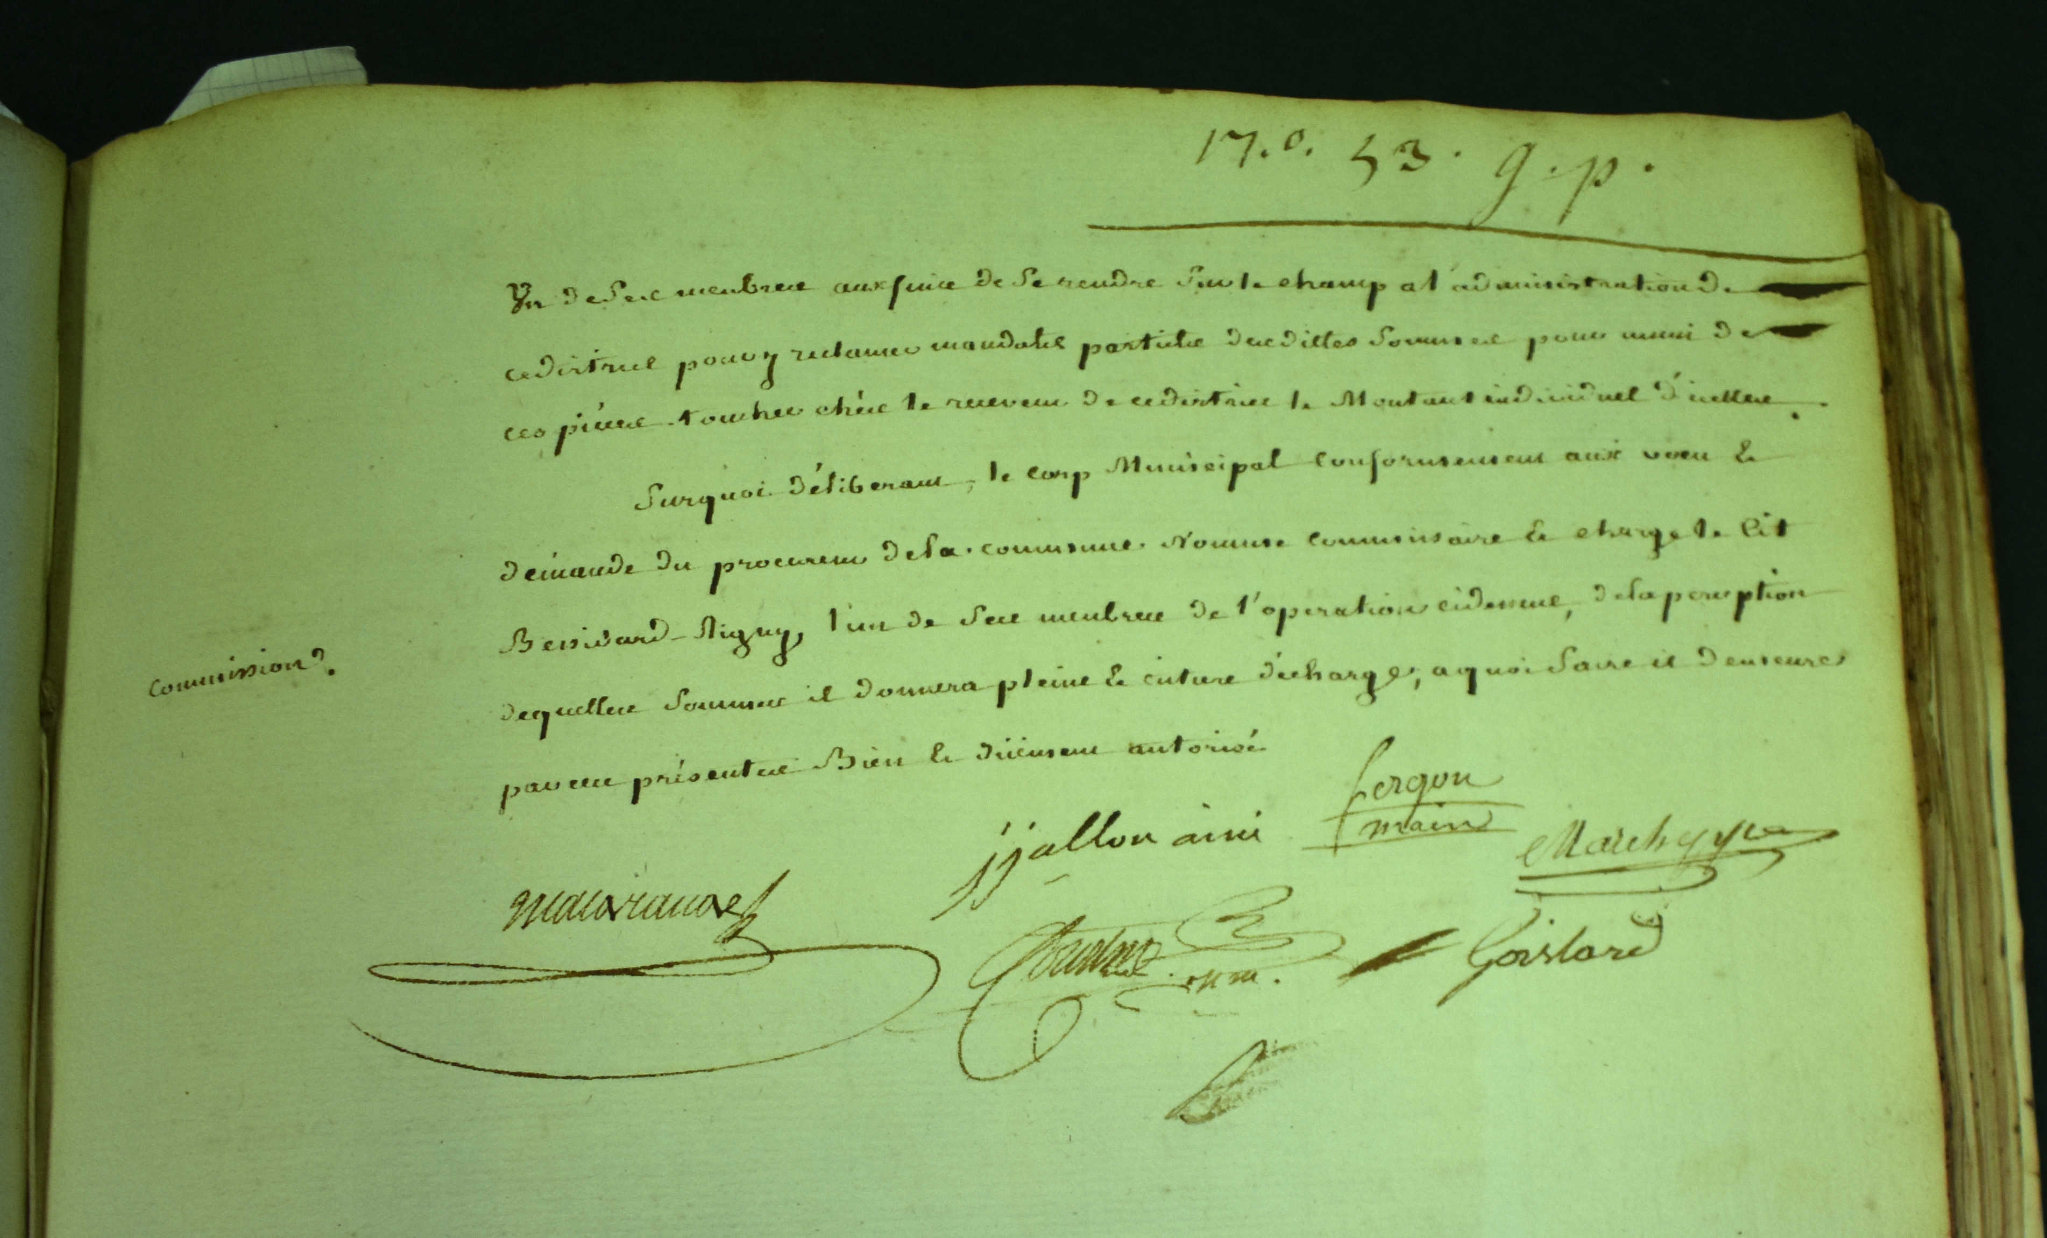 17.o. 53. g.p.
Un de ses menbres aux fins de se rendre sur le champ a l'administration de
ce district pour y reclamer mandats partiels desdittes sommes pour muni de
ces piéces toucher chéz le receveur de ce district le Montant individuel d'icelles.
Surquoi déliberant, le corp Municipal conformement aux voeu &
demande du procureur de la commune. Nomme commissaire & charge le Cit
l'un de ses menbres de l'operation cidessus, de la perception
commission.
desquelles sommes il donnera pleine & entiere décharge, a quoi faire il demeure
par ces présentes Bien & duement autorisé
jjallon ainé
fergon
maire
Goislard